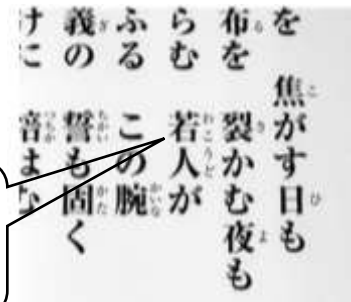 を 焦がす日も
布を 裂かむ夜も
らむ 若人が
ふる この腕
義の 誓も固く
けに